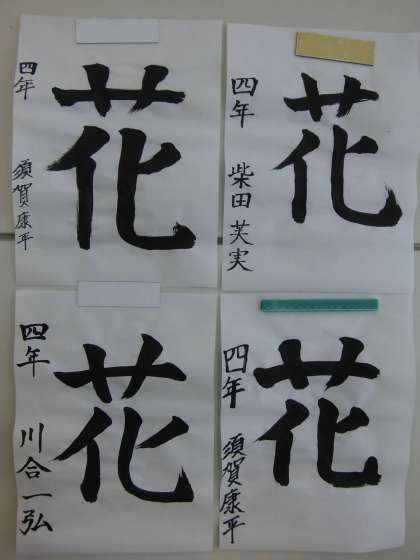 花
四年 須賀康平
花
四年 柴田芙実
花
四年 川合一弘
花
四年 須賀康平